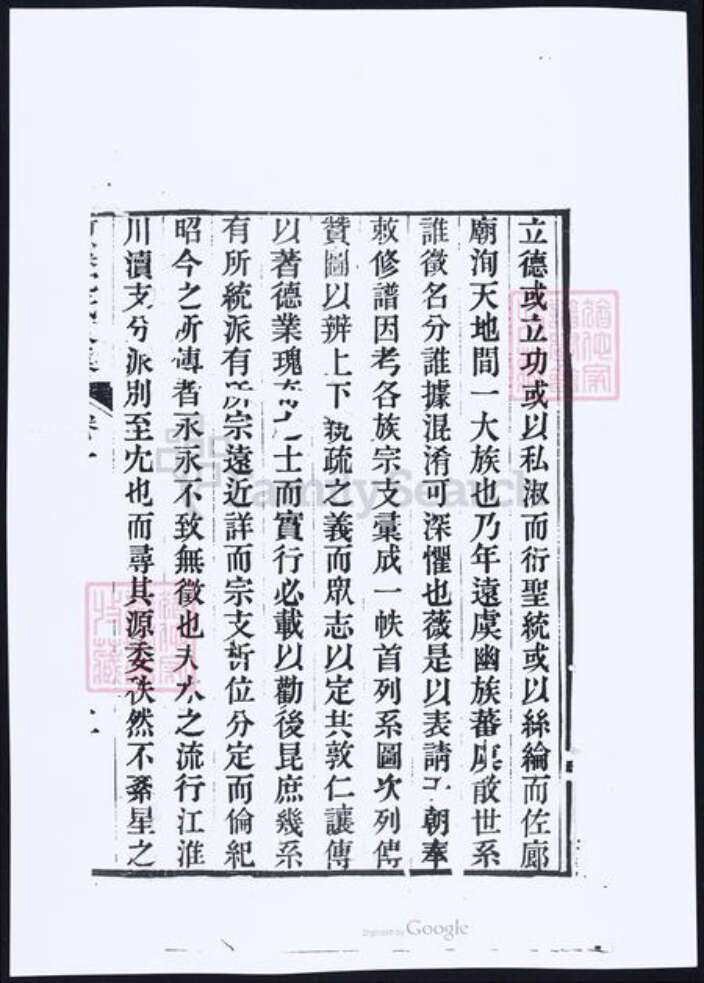 立德或立功或以私淑而衍聖統或以絲綸而佐廊
廟洵天地間一大族也乃年遠虞幽族蕃虞散世系
誰徵名分誰據混淆可深懼也薇是以表請于朝奉
敕修譜因考各族宗支彙成一帙首列系圖次列傳
贊圖以辨上下親疏之義而眾志以定共敦仁讓傳
以著德業瑰奇之士而實行必載以勸後昆庶幾系
有所統派有所宗遠近詳而宗支析位分定而倫紀
昭今之所傳者永永不致無徵也夫水之流行江淮
川瀆支分派別至冘也而尋其源委秩然不紊星之
卷一
FamilySearch
Digitized by Google